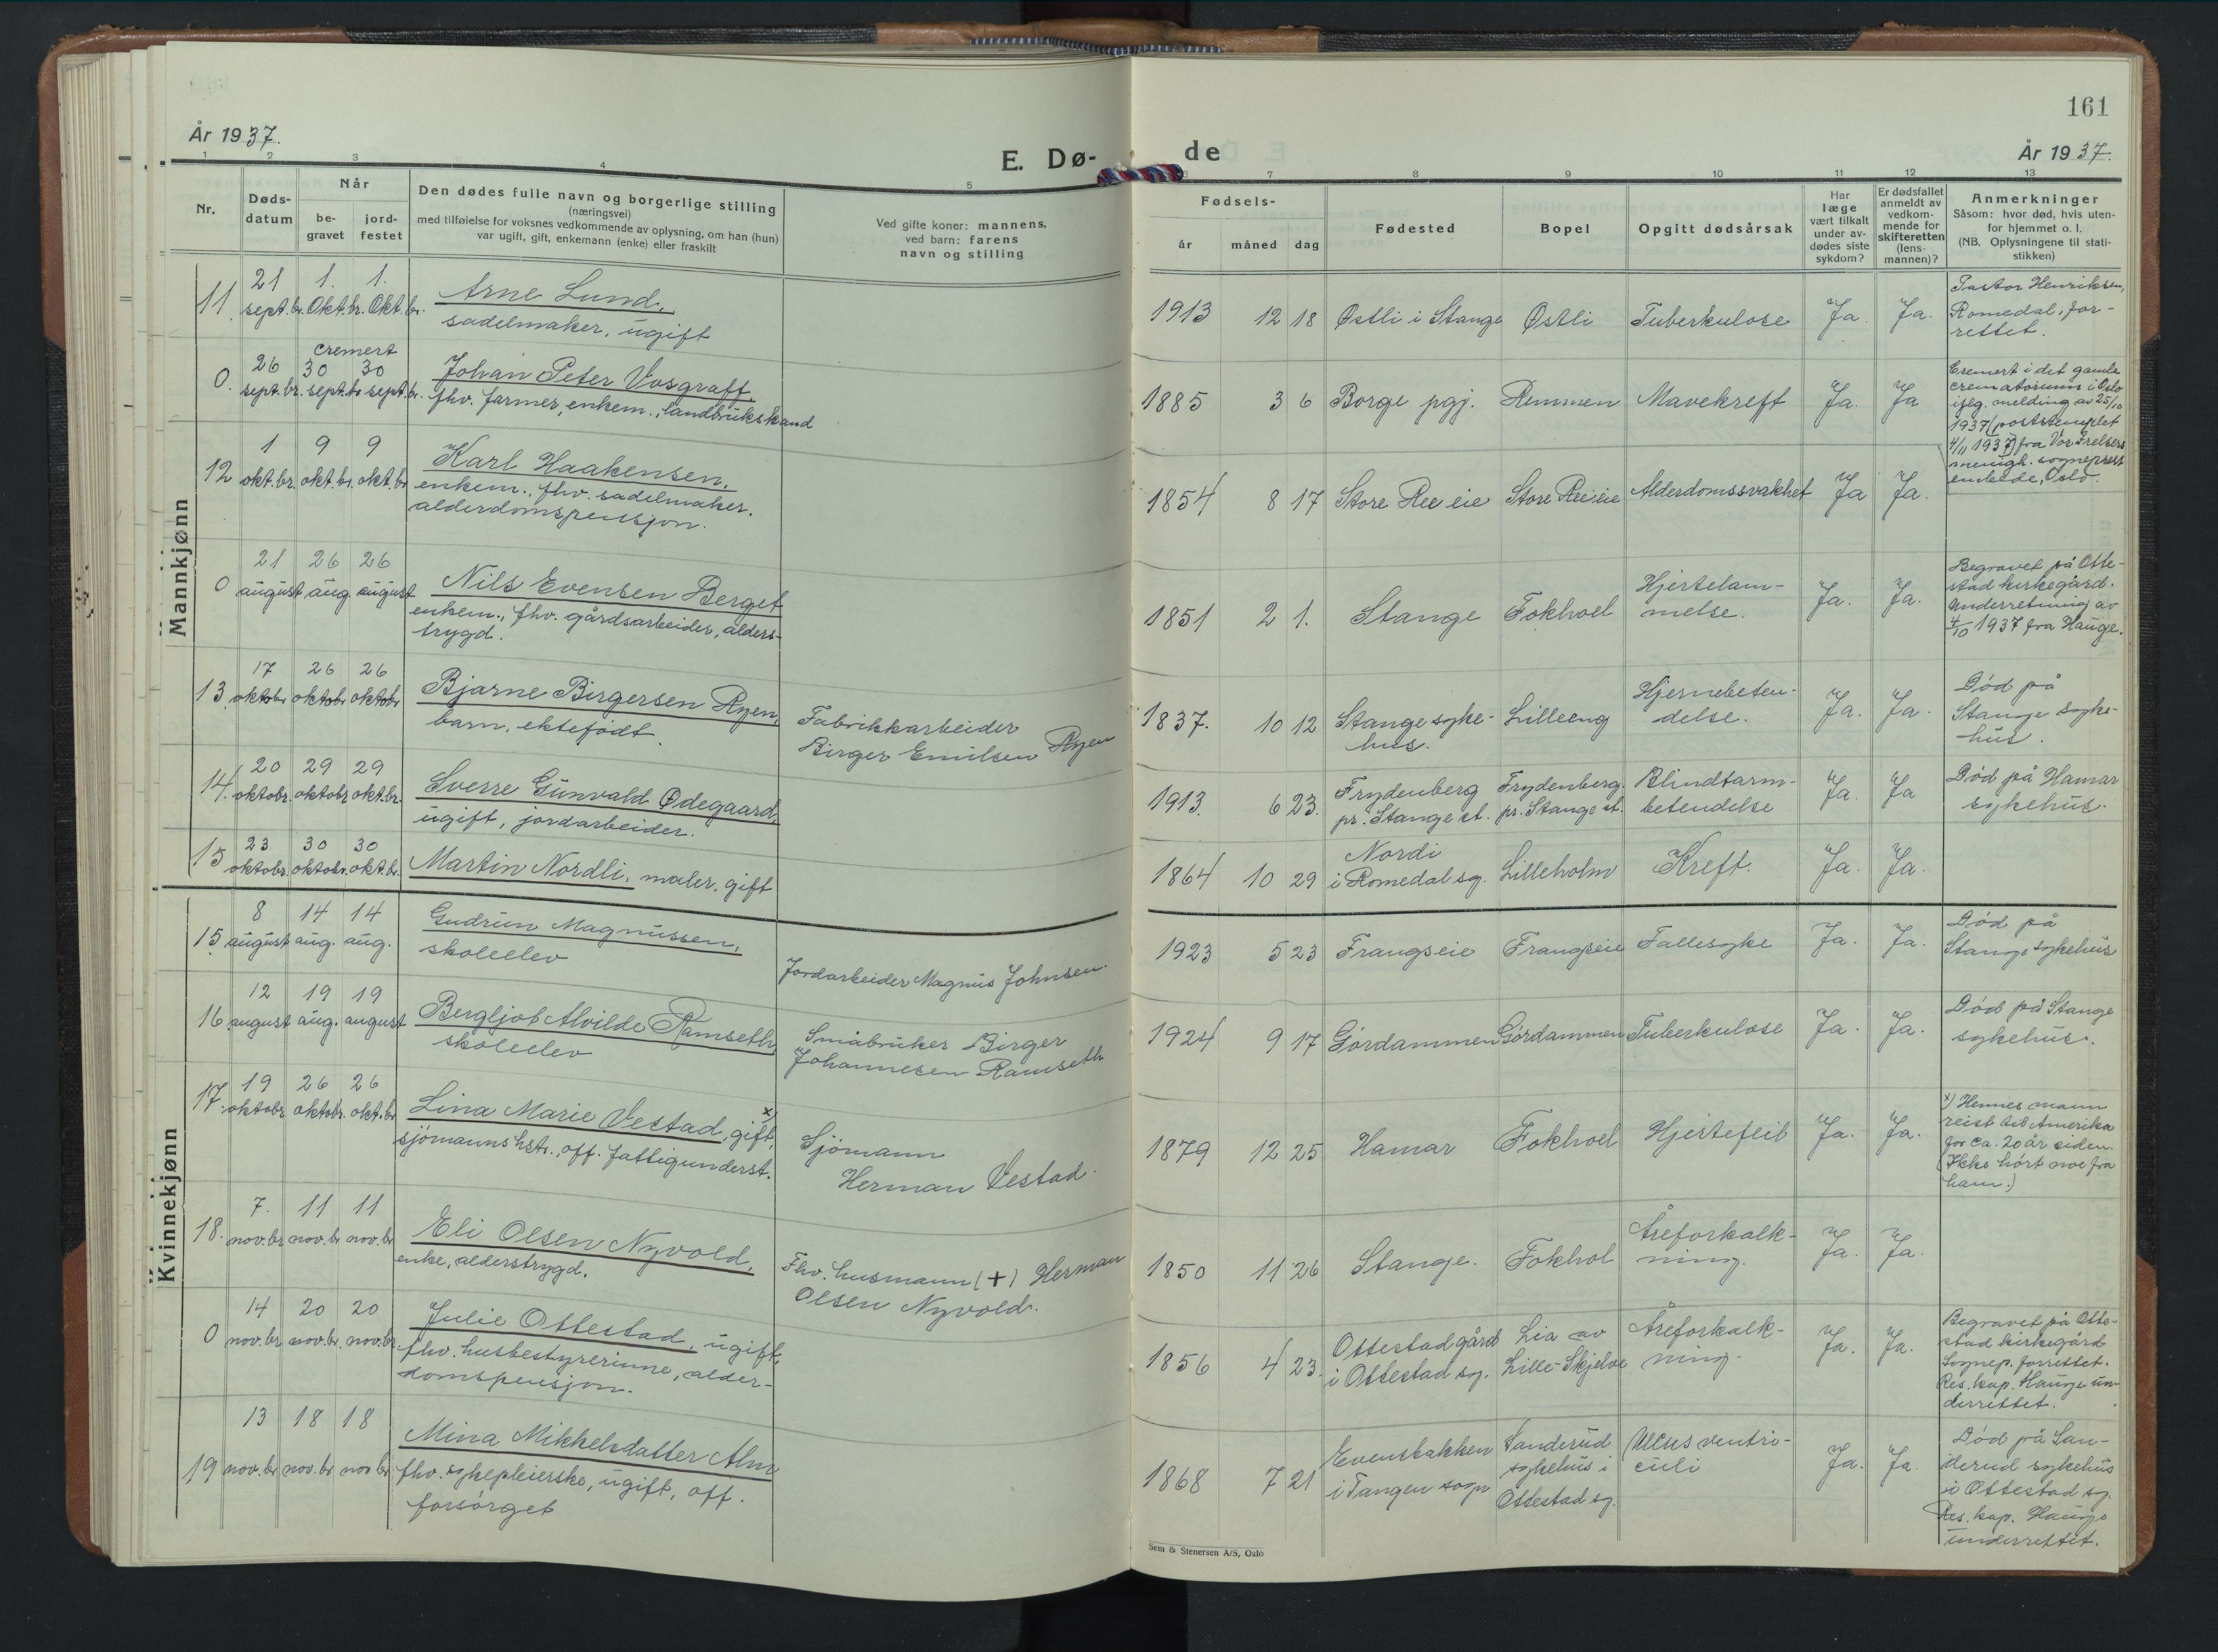 161
År 1937.
E. Dø-
de
År 1937.
1 2 3 4 5
6 7 8 9 10 11 12 13
Nr.
Døds-
datum
Når
be-
gravet
jord-
festet
Den dødes fulle navn og borgerlige stilling
(næringsvei)
med tilføielse for voksnes vedkommende av oplysning, om han (hun)
var ugift, gift, enkemann (enke) eller fraskilt
Ved gifte koner: mannens,
ved barn: farens
navn og stilling
Fødsels-
år måned dag
Fødested
Bopel
Opgitt dødsårsak
Har
læge
vært tilkalt
under av-
dødes siste
sykdom?
Er dødsfallet
anmeldt av
vedkom-
mende for
skifteretten
(lens-
mannen)?
Anmerkninger
Såsom: hvor død, hvis uten-
for hjemmet o. l.
(NB. Oplysningene til stati-
stikken)
Mannkjønn
11. 21 sept.br. 1. Okt.br. 1. Okt.br.
Arne Lund,
sadelmaker, ugift
1913 12 18 Østli i Stange Østli Tuberkulose Ja. Ja.
Pastor Henriksen,
Romedal, for-
rettet.
cremert
0. 26 sept.br. 30 sept.br 30 sept.br.
Johan Peter Vosgraff,
fhv. farmer, enkem., landbrukskand
1885 3 6 Borge pgj. Remmen Mavekreft Ja. Ja
Cremert i det gamle
crematorium i Oslo
iflg. melding av 25/10
1937 (poststemplet
4/11 1937) fra Vor Frelsers
menigh. sogneprest
embede, Oslo.
12 1 okt.br. 9 okt.br. 9 okt.br
Karl Haakensen,
enkem., fhv. sadelmaker.
alderdomspensjon.
1854 8 17 Store Ree eie Store Ree eie Alderdomssvakhet Ja Ja.
0 21 august 26 aug. 26 august
Nils Evensen Berget
enkem., fhv. gårdsarbeider, alders-
trygd.
1851 2 1. Stange Fokhoel Hjertelam-
melse. Ja. Ja.
Begravet på Otte-
stad kirkegård.
Underretning av
4/10 1937 fra Hauge.
13. 17 oktobr 26 oktobr 26 oktobr
Bjarne Birgersen Ryen,
barn, ektefödt.
Fabrikkarbeider
Birger Emilsen Ryen
1837. 10 12 Stange syke-
hus. Lilleeng Hjernebeten-
delse. Ja. Ja.
Död på
Stange syke-
hus.
14. 20 oktobr. 29 oktobr 29 okt.br.
Sverre Gunvald Ødegaard,
ugift, jordarbeider.
1913. 6 23. Frydenberg
pr. Stange st. Frydenberg
pr. Stange st. Blindtarm-
betendelse Ja. Ja
Död på Hamar
sykehus.
15 23 oktobr. 30 oktobr. 30 okt.br.
Martin Nordli, maler, gift
1864 10 29 Nordi
i Romedal sg. Lilleholm Kreft. Ja. Ja.
Kvinnekjønn
15. 8 august 14 aug. 14 aug.
Gudrun Magnussen,
skoleelev
Jordarbeider Magnus Johnsen.
1923 5 23 Frangseie Frangseie Fallesyke Ja. Ja.
Död på
Stange sykehus
16 12 august 19 aug. 19 august
Bergljot Alvilde Ramseth,
skoleelev
Småbruker Birger
Johannesen Ramseth
1924 9 17 Gördammen Gördammen Tuberkulose Ja. Ja.
Död på Stange
sykehus.
17. 19 oktobr 26 oktobr. 26 okt.br
Lina Marie Vestad, gift, x)
sjömanns hstr., off. fattigunderst.
Sjömann
Herman Vestad.
1879 12 25 Hamar Fokhoel Hjertefeil Ja. Ja.
x) Hennes mann
reist til Amerika
for ca. 20 år siden.
(Ikke hört noe fra
ham.)
18. 7. nov.br 11 nov.br 11 nov.br
Eli Olsen Nyvold,
enke, alderstrygd.
Fhv. husmann (+) Herman
Olsen Nyvold.
1850 11 26 Stange. Fokhol Åreforkalk-
ning. Ja. Ja.
0 14 nov.br 20 nov.br. 20 nov.br
Julie Ottestad, ugift,
fhv. husbestyrerinne, alder-
domspensjon.
1856 4 23. Ottestad gård
i Ottestad sg. Lia av
Lille-Skjelve Åreforkalk-
ning. Ja. Ja.
Begravet på Otte-
stad kirkegård
Sognep. forrettet.
Res. kap. Hauge un-
derrettet.
19 13 nov.br 18 nov.br 18 nov.br
Mina Mikkelsdatter Alm
fhv. sykepleierske, ugift, off.
forsörget
1868 7 21 Evenstakken
i Tangen sogn Sanderud
sykehus i
Ottestad sg. Ulcus ventri-
culi Ja. Ja.
Död på San-
derud sykehus
i Ottestad sg.
Res. kap. Hauge
underrettet.
Sem & Stenersen A/S, Oslo